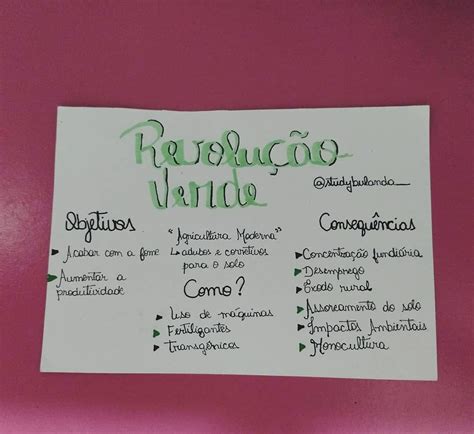 Revolução
Verde
@studybulanda_
Objetivos
Acabar com a fome
Aumentar a
produtividade
"Agricultura Moderna"
adubos e corretivos
para o solo
Como?
Uso de máquinas
Fertilizantes
Transgênicos
Consequências
Concentração fundiária
Desemprego
Êxodo rural
Assoreamento do solo
Impactos Ambientais
Monocultura